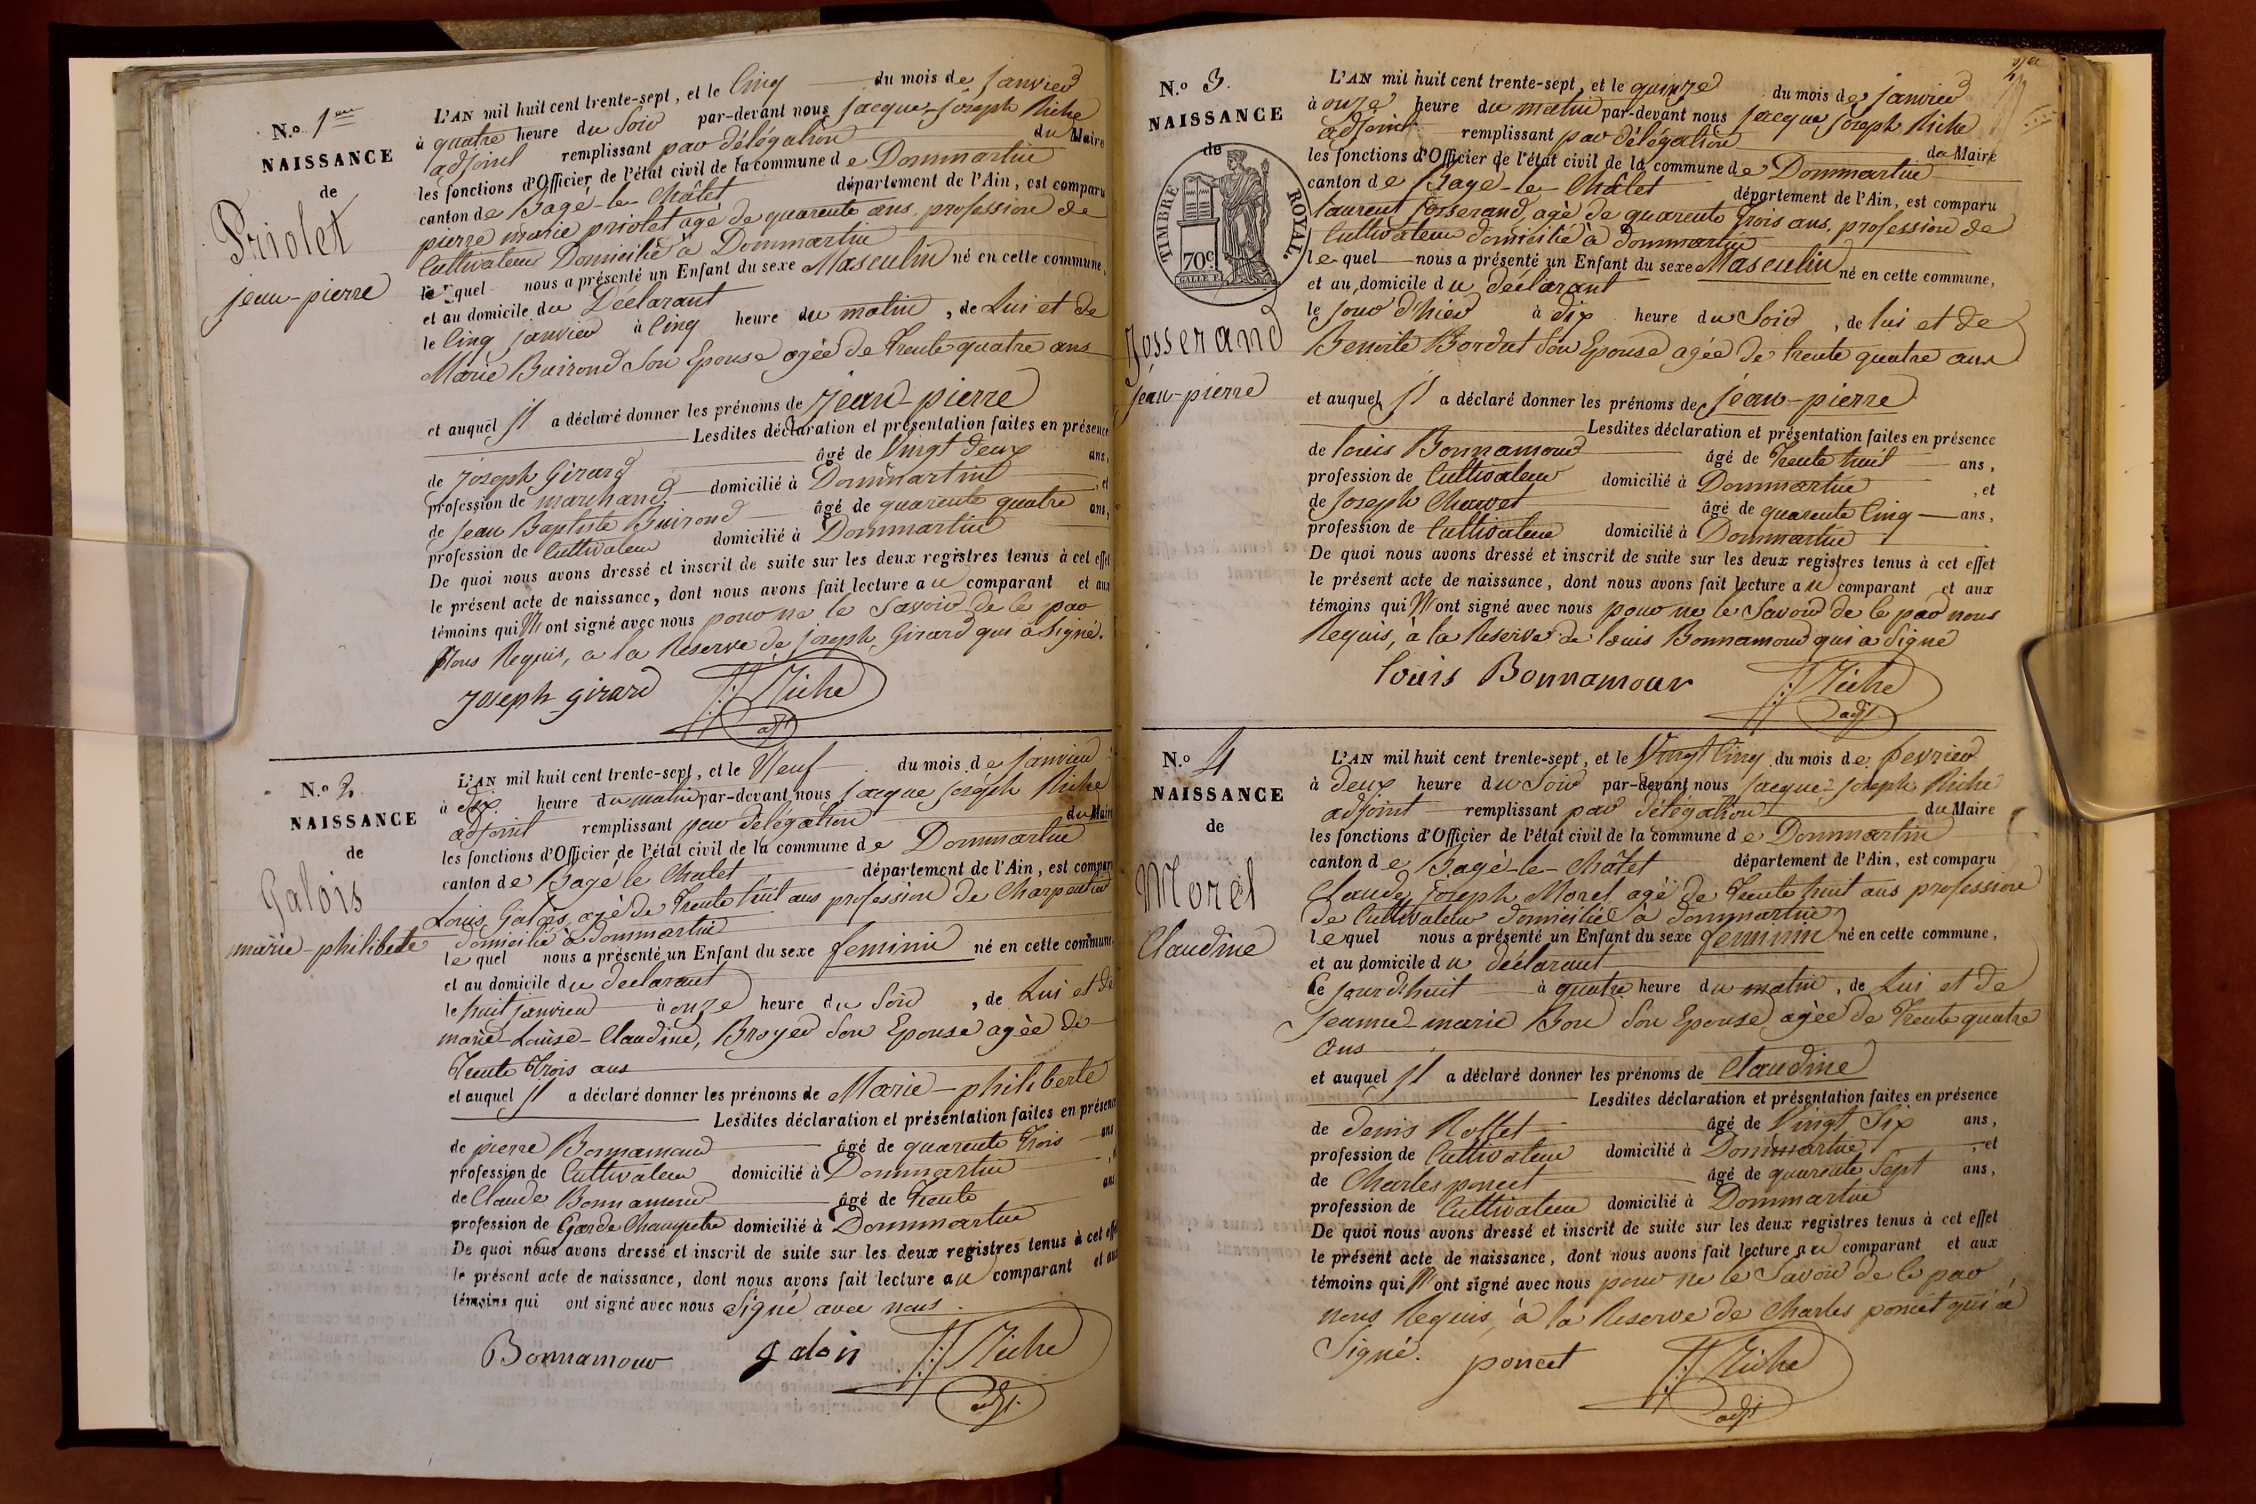 N.o 1er
NAISSANCE
de
Priolet
jean-pierre
L'AN mil huit cent trente-sept, et le Cinq du mois de janvier
à quatre heure du Soir par-devant nous jacque-joseph Riche
adjoint remplissant par délégation du Maire
les fonctions d'Officier de l'état civil de la commune de Dommartin
canton de Bagé-le-Châtel département de l'Ain, est comparu
pierre marie priolet agé de quarente ans, profession de
Cultivateur Domicilié à Dommartin
lequel nous a présenté un Enfant du sexe Masculin né en cette commune,
et au domicile du Declarant
le Cinq janvier à Cinq heure du matin, de Lui et de
Marie Buirond Son Epouse agée de Trente quatre ans
et auquel il a déclaré donner les prénoms de jean-pierre
Lesdites déclaration et présentation faites en présence
de joseph Girard âgé de Vingt deux ans,
profession de marchand domicilié à Dommartin, et
de jean Baptiste Buirond âgé de quarente quatre ans,
profession de Cultivateur domicilié à Dommartin
De quoi nous avons dressé et inscrit de suite sur les deux registres tenus à cet effet
le présent acte de naissance, dont nous avons fait lecture au comparant et aux
témoins qui N'ont signé avec nous pour ne le Savoir de ce par
Nous Requis, a la Reserve de joseph Girard qui a Signé.
joseph girard JJ Riche
adjt
N.o 2
NAISSANCE
de
Galois
marie-philiberte
L'AN mil huit cent trente-sept, et le Neuf du mois de janvier
à dix heure du matin par-devant nous jacque joseph Riche
adjoint remplissant par délégation du Maire
les fonctions d'Officier de l'état civil de la commune de Dommartin
canton de Bagé le Chatel département de l'Ain, est comparu
Louis Galois, agé de Trente huit ans profession de Charpentier
domicilié à dommartin
lequel nous a présenté un Enfant du sexe feminin né en cette commune
et au domicile du declarant
le huit janvier à onze heure du Soir, de Lui et de
marie-Louise-Claudine, Broyer Son Epouse agée de
Trente Trois ans
et auquel il a déclaré donner les prénoms de Marie-philiberte
Lesdites déclaration et présentation faites en présence
de pierre Bonnamour âgé de quarente Trois ans
profession de Cultivateur domicilié à Dommartin
de Claude Bonnamour âgé de Trente ans
profession de Garde Champetre domicilié à Dommartin
De quoi nous avons dressé et inscrit de suite sur les deux registres tenus à cet effet
le présent acte de naissance, dont nous avons fait lecture au comparant et aux
témoins qui ont signé avec nous Signé avec nous.
Bonnamour galois JJ Riche
adjt.
N.o 3.
NAISSANCE
de
TIMBRE ROYAL.
70c
Josserand
jean-pierre
L'AN mil huit cent trente-sept, et le quinze du mois de janvier
à onze heure du matin par-devant nous jacque joseph Riche
adjoint remplissant par délégation du Maire
les fonctions d'Officier de l'état civil de la commune de Dommartin
canton de Bagé-le-Châtel département de l'Ain, est comparu
laurent josserand, agé de quarente Trois ans, profession de
Cultivateur domicilié à dommartin
lequel nous a présenté un Enfant du sexe Masculin né en cette commune,
et au domicile du déclarant
le jour d'hier à dix heure du Soir, de lui et de
Benoite Bordat Son Epouse agée de trente quatre ans
et auquel il a déclaré donner les prénoms de jean-pierre
Lesdites déclaration et présentation faites en présence
de louis Bonnamour âgé de Trente huit ans,
profession de Cultivateur domicilié à Dommartin, et
de joseph Chavet âgé de quarente Cinq ans,
profession de Cultivateur domicilié à Dommartin
De quoi nous avons dressé et inscrit de suite sur les deux registres tenus à cet effet
le présent acte de naissance, dont nous avons fait lecture au comparant et aux
témoins qui N'ont signé avec nous pour ne le Savoir de ce par nous
Requis, à la Reserve de louis Bonnamour qui a Signé
louis Bonnamour JJ Riche
adjt.
N.o 4
NAISSANCE
de
Morel
Claudine
L'AN mil huit cent trente-sept, et le Vingt Cinq du mois de fevrier
à deux heure du Soir par-devant nous jacque-joseph Riche
adjoint remplissant par délégation du Maire
les fonctions d'Officier de l'état civil de la commune de Dommartin
canton de Bagé-le-Châtel département de l'Ain, est comparu
Claude joseph Morel agé de Trente huit ans profession
de Cultivateur domicilié à dommartin
lequel nous a présenté un Enfant du sexe feminin né en cette commune,
et au domicile du déclarant
le jourd'huit à quatre heure du matin, de Lui et de
jeanne-marie Bon Son Epouse agée de Trente quatre
ans
et auquel il a déclaré donner les prénoms de Claudine
Lesdites déclaration et présentation faites en présence
de denis Roffet âgé de Vingt Six ans,
profession de Cultivateur domicilié à Dommartin, et
de Charles poncet âgé de quarente Sept ans,
profession de Cultivateur domicilié à Dommartin
De quoi nous avons dressé et inscrit de suite sur les deux registres tenus à cet effet
le présent acte de naissance, dont nous avons fait lecture au comparant et aux
témoins qui N'ont signé avec nous pour ne le Savoir de ce par
nous Requis, à la Reserve de Charles poncet qui a
Signé. poncet JJ Riche
adjt